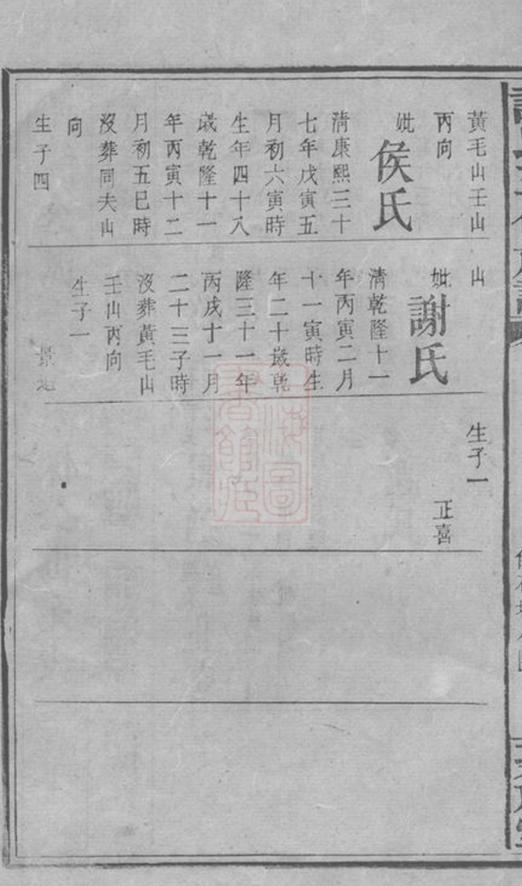 黃毛山壬山
丙向
妣侯氏
清康熙三十
七年戊寅五
月初六寅時
生年四十八
歲乾隆十一
年丙寅十二
月初五巳時
沒葬同夫山
向
生子四
山
妣謝氏
清乾隆十一
年丙寅二月
十一寅時生
年二十歲乾
隆三十一年
丙戌十一月
二十三子時
沒葬黃毛山
壬山丙向
生子一
生子一
正喜